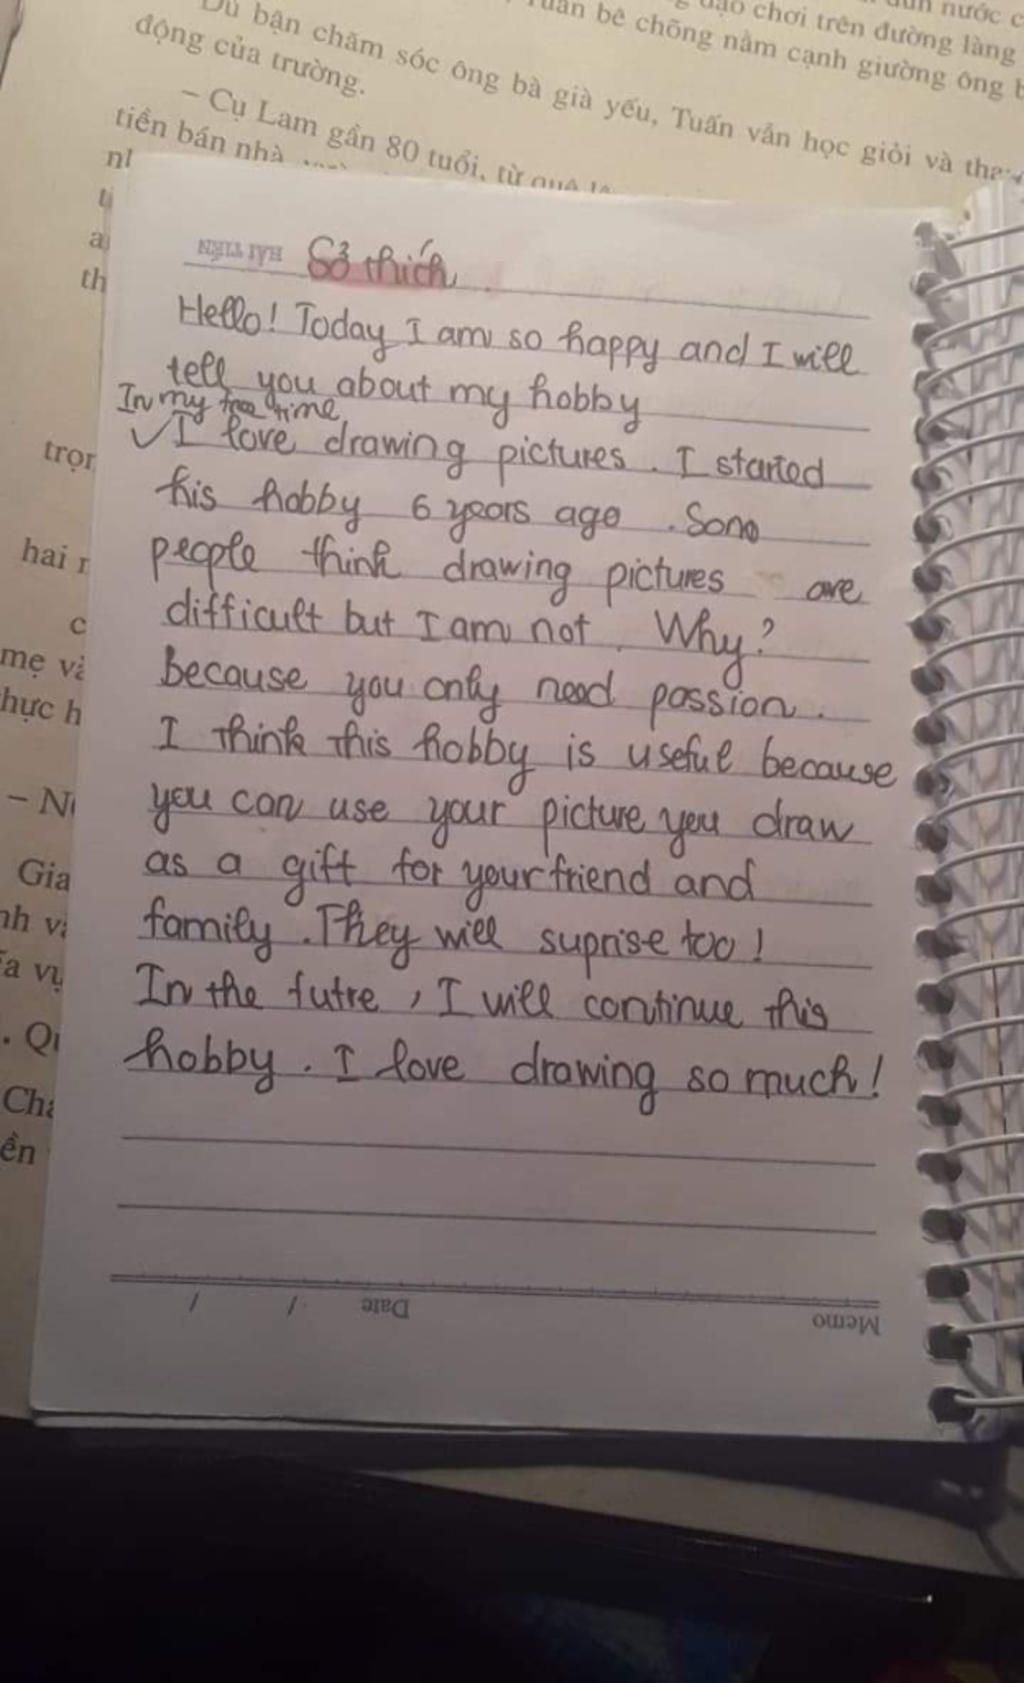 Dù bận chăm sóc ông bà già yếu, Tuấn vẫn học giỏi và tha
động của trường.
dạo chơi trên đường làng
bê chõng nằm cạnh giường ông b
nước c
– Cụ Lam gần 80 tuổi, từ quê
tiền bán nhà
th
trọn
hai
mẹ và
hực h
– N
Gia
nh v
a vụ
. Qu
Chá
ền
HẢI TIẾN
Sở thích
Hello! Today I am so happy and I will
tell you about my hobby
In my free time
I love drawing pictures. I started
his hobby 6 years ago. Some
people think drawing pictures are
difficult but I am not. Why?
Because you only need passion.
I think this hobby is useful because
you can use your picture you draw
as a gift for your friend and
family. They will suprise too!
In the futre, I will continue this
hobby. I love drawing so much!
Memo
Date / /